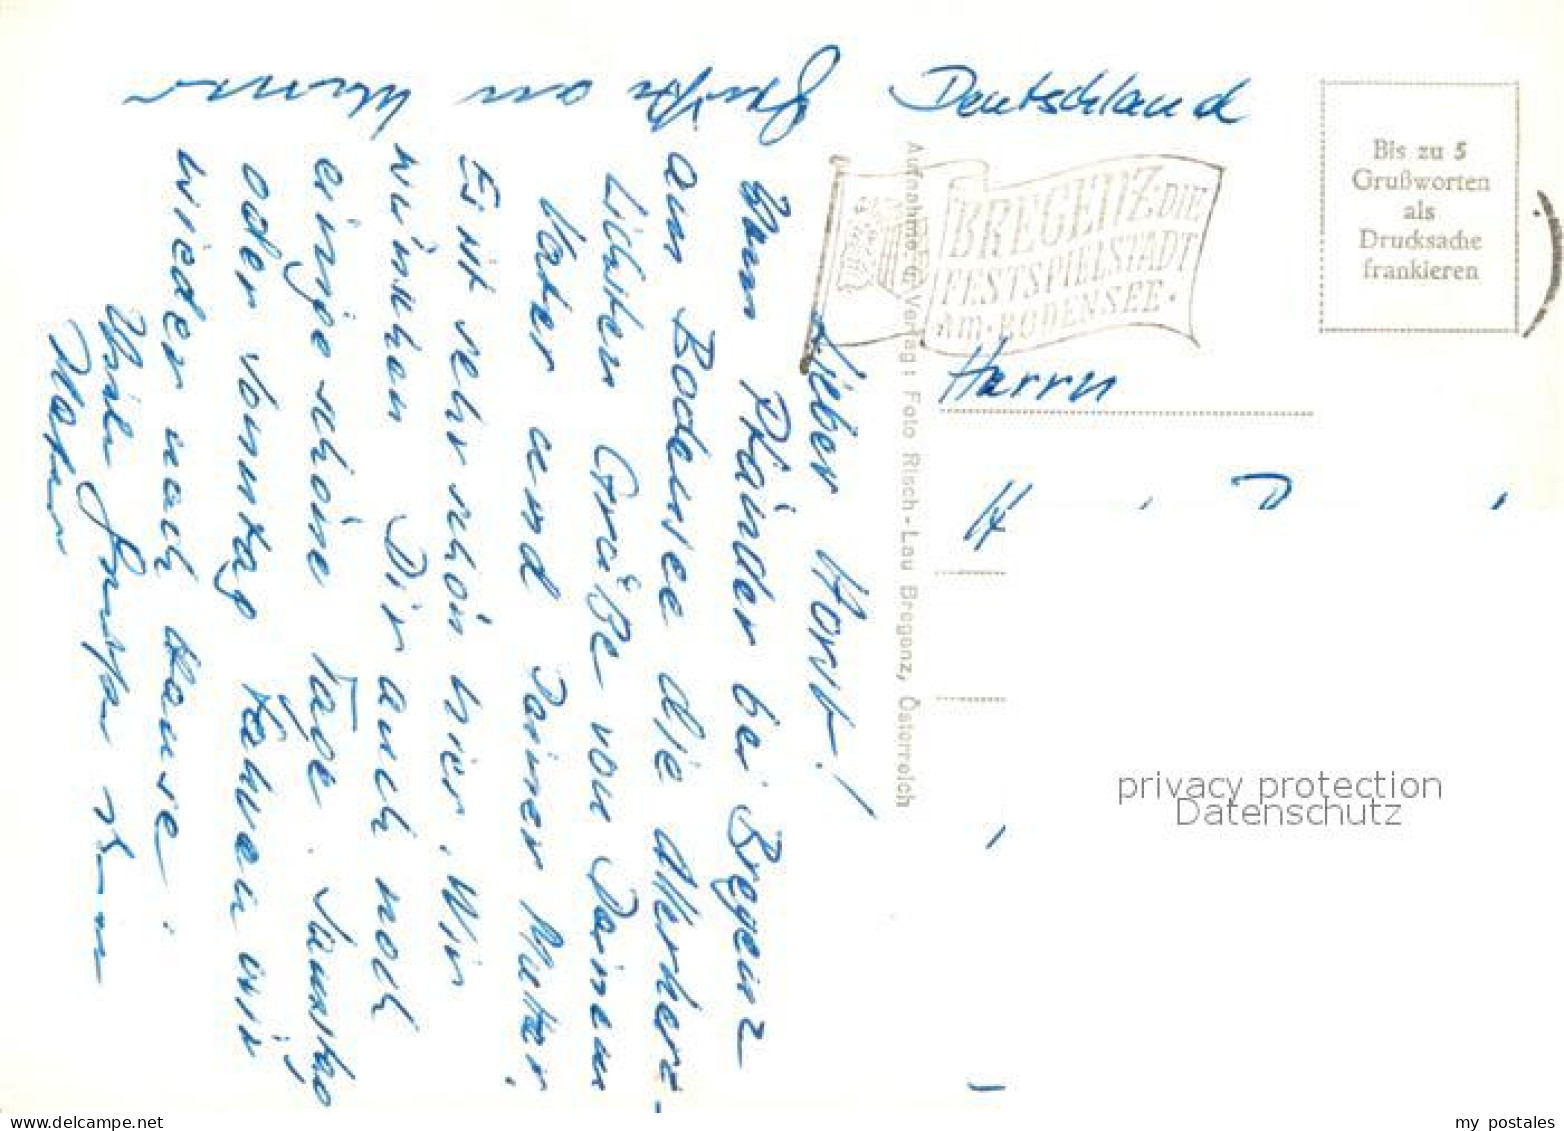 Deutschland
Bis zu 5
Grußworten
als
Drucksache
frankieren
BREGENZ·DIE
FESTSPIELSTADT
·AM·BODENSEE·
Herrn
H
Aufnahme u. Verlag: Foto Risch-Lau Bregenz, Österreich
Lieber Horst!
Vom Pfänder bei Bregenz
am Bodensee die Allerherz-
lichsten Grüße von Deinem
Vater und Deiner Mutter.
Es ist sehr schön hier. Wir
wünschen Dir auch noch
einige schöne Tage. Samstag
oder Sonntag fahren wir
wieder nach Hause.
Viele Grüße
Mutter
Grüße an
privacy protection
Datenschutz
www.delcampe.net
my postales